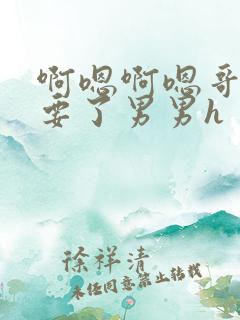 啊嗯啊嗯哥
要了男男h
徐祥清
未经同意禁止转载